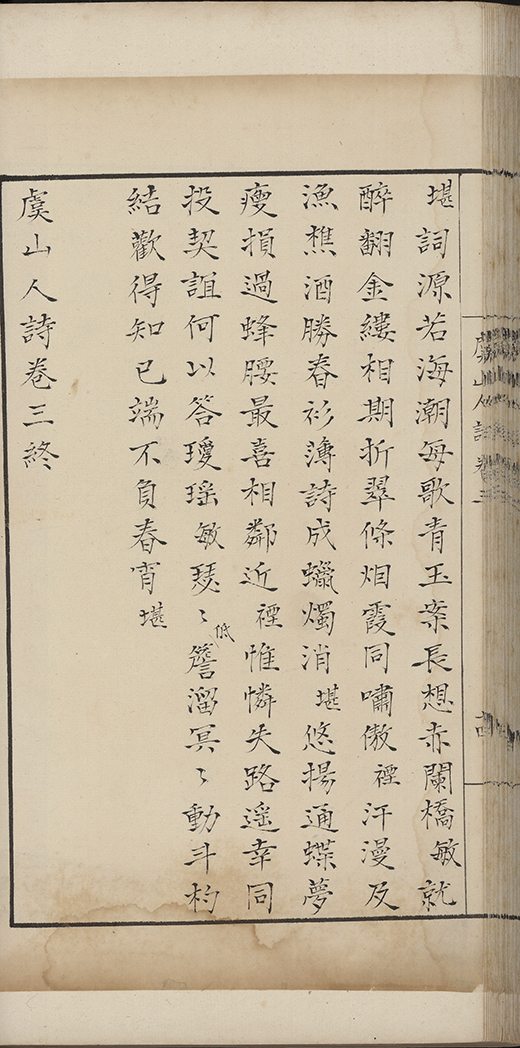 堪詞源若海潮每歌青玉案長想赤闌橋敏就
醉翻金縷相期折翠條烟霞同嘯傲禋汗漫及
漁樵酒勝春衫薄詩成蠟燭消堪悠揚通蝶夢
瘦損過蜂腰最喜相鄰近禋惟憐失路遥幸同
投契誼何以答瓊瑶敏瑟〻簷溜冥〻動斗杓
低
結歡得知已端不負春宵堪
虞山人詩卷三終
虞山人詩卷三